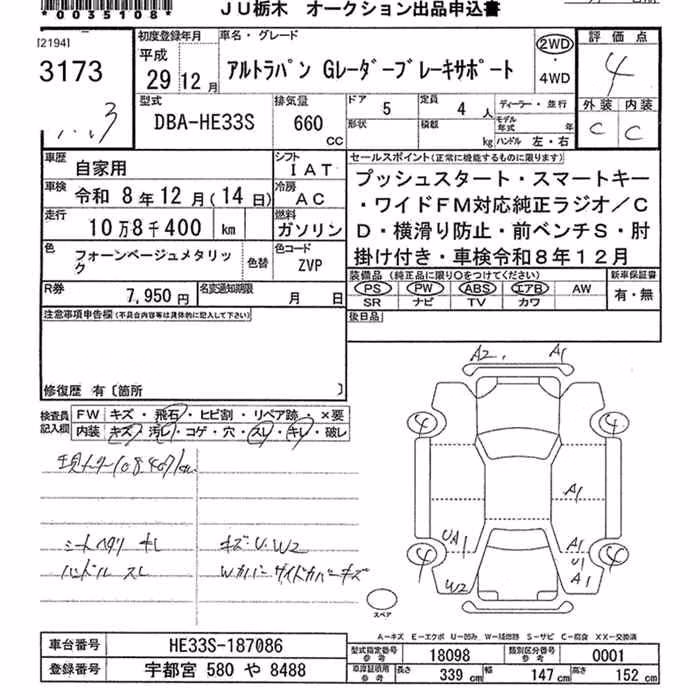 *0035108*
JU栃木 オークション出品申込書
[2194]
3173
初度登録年月
平成
29年12月
車名・グレード
アルトラパン Gレーダーブレーキサポート
2WD
・
4WD
評価点
4
型式
DBA-HE33S
排気量
660 CC
ドア 5
定員 4人
形状
積載 kg
ディーラー・並行
モデル年式 年
ハンドル 左・右
外装 内装
C C
車歴 自家用
シフト IAT
車検 令和 8年12月(14日)
冷房 AC
走行 10万8千400 km
燃料 ガソリン
色 フォーンベージュメタリック
色替
色コード ZVP
R券 7,950円
名変通知期限 月 日
セールスポイント(正常に機能するものに限ります)
プッシュスタート・スマートキー
・ワイドFM対応純正ラジオ/C
D・横滑り防止・前ベンチS・肘
掛け付き・車検令和8年12月
装備品(純正品に限り○をつけてください)
新車保証書
PS PW ABS エアB AW
有・無
SR ナビ TV カワ
後日品
注意事項申告欄(不具合内容等は具体的に記入して下さい)
修復歴 有〔箇所 〕
検査員記入欄
FW キズ・飛石・ヒビ割・リペア跡・×要
内装 キズ・汚レ・コゲ・穴・スレ・キレ・破レ
現メーター108407km
シートヘタリ キレ
キズ・U・W2
ハンドル スレ
Wカバー サイドカバーキズ
A2 A1
4 4
A1
UA1 A1
U1
4 4
W2 A1
スペア
A-キズ E-エクボ U-凹み W-補修跡 S-サビ C-腐食 XX-交換済
車台番号 HE33S-187086
登録番号 宇都宮 580 や 8488
型式指定番号 参考 18098
類別区分番号 参考 0001
車庫証明用 参考 長さ 339 cm 幅 147 cm 高さ 152 cm